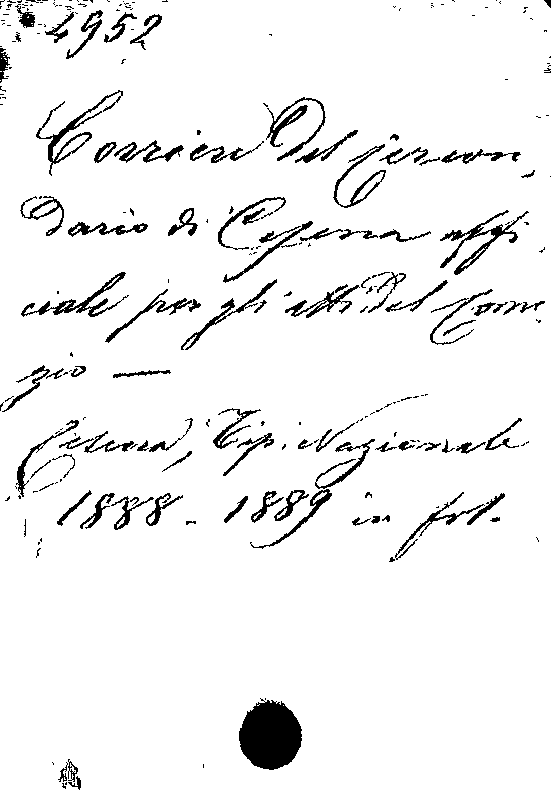 4952
Corriere Del Circon,
dario di Cesena uffi
ciale per gli atti del Comi
zio —
Cesena, Tip. Nazionale
1888 - 1889 in fol.